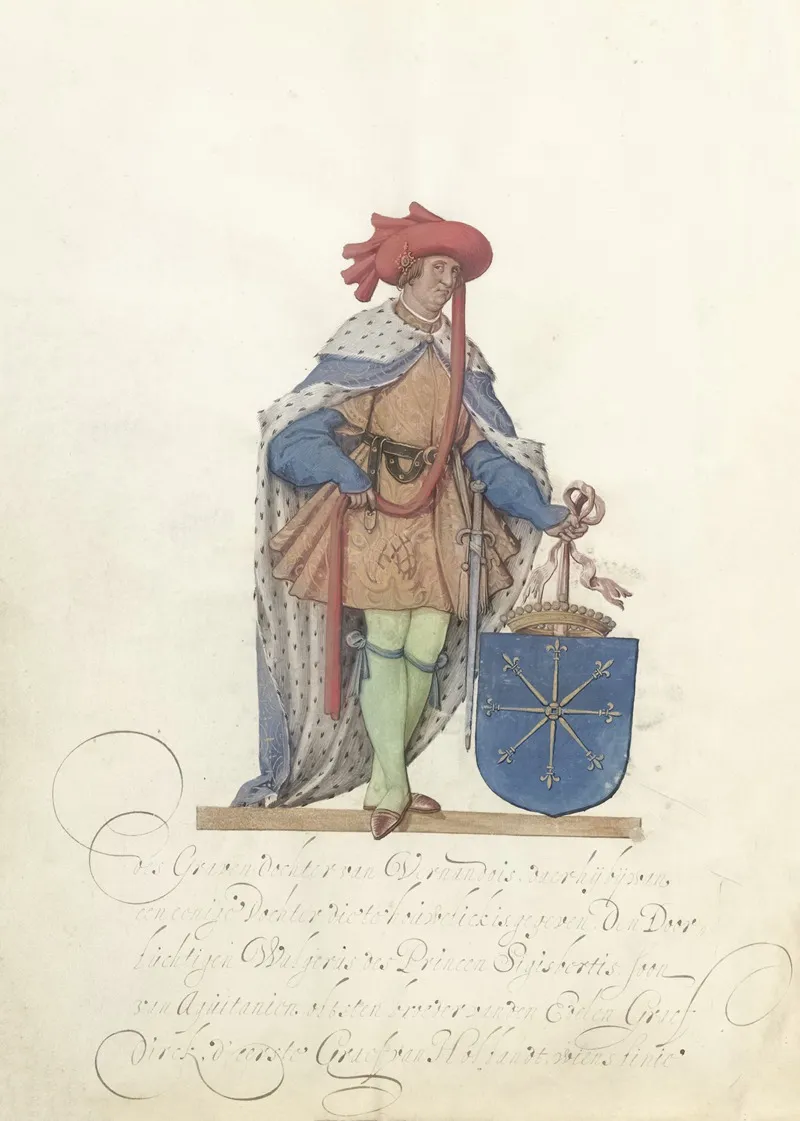 des Graven dochter van Vernandois, daer hÿ bÿ van
een eenige Dochter die te houwelick is gegeven. Den Door
luchtigen Walgeris des Princen Sigisbertis soon
van Aquitanien. oudsten broeder vanden Edelen Graef
Dirck, d'eerste Graef van Hollandt, wiens linie